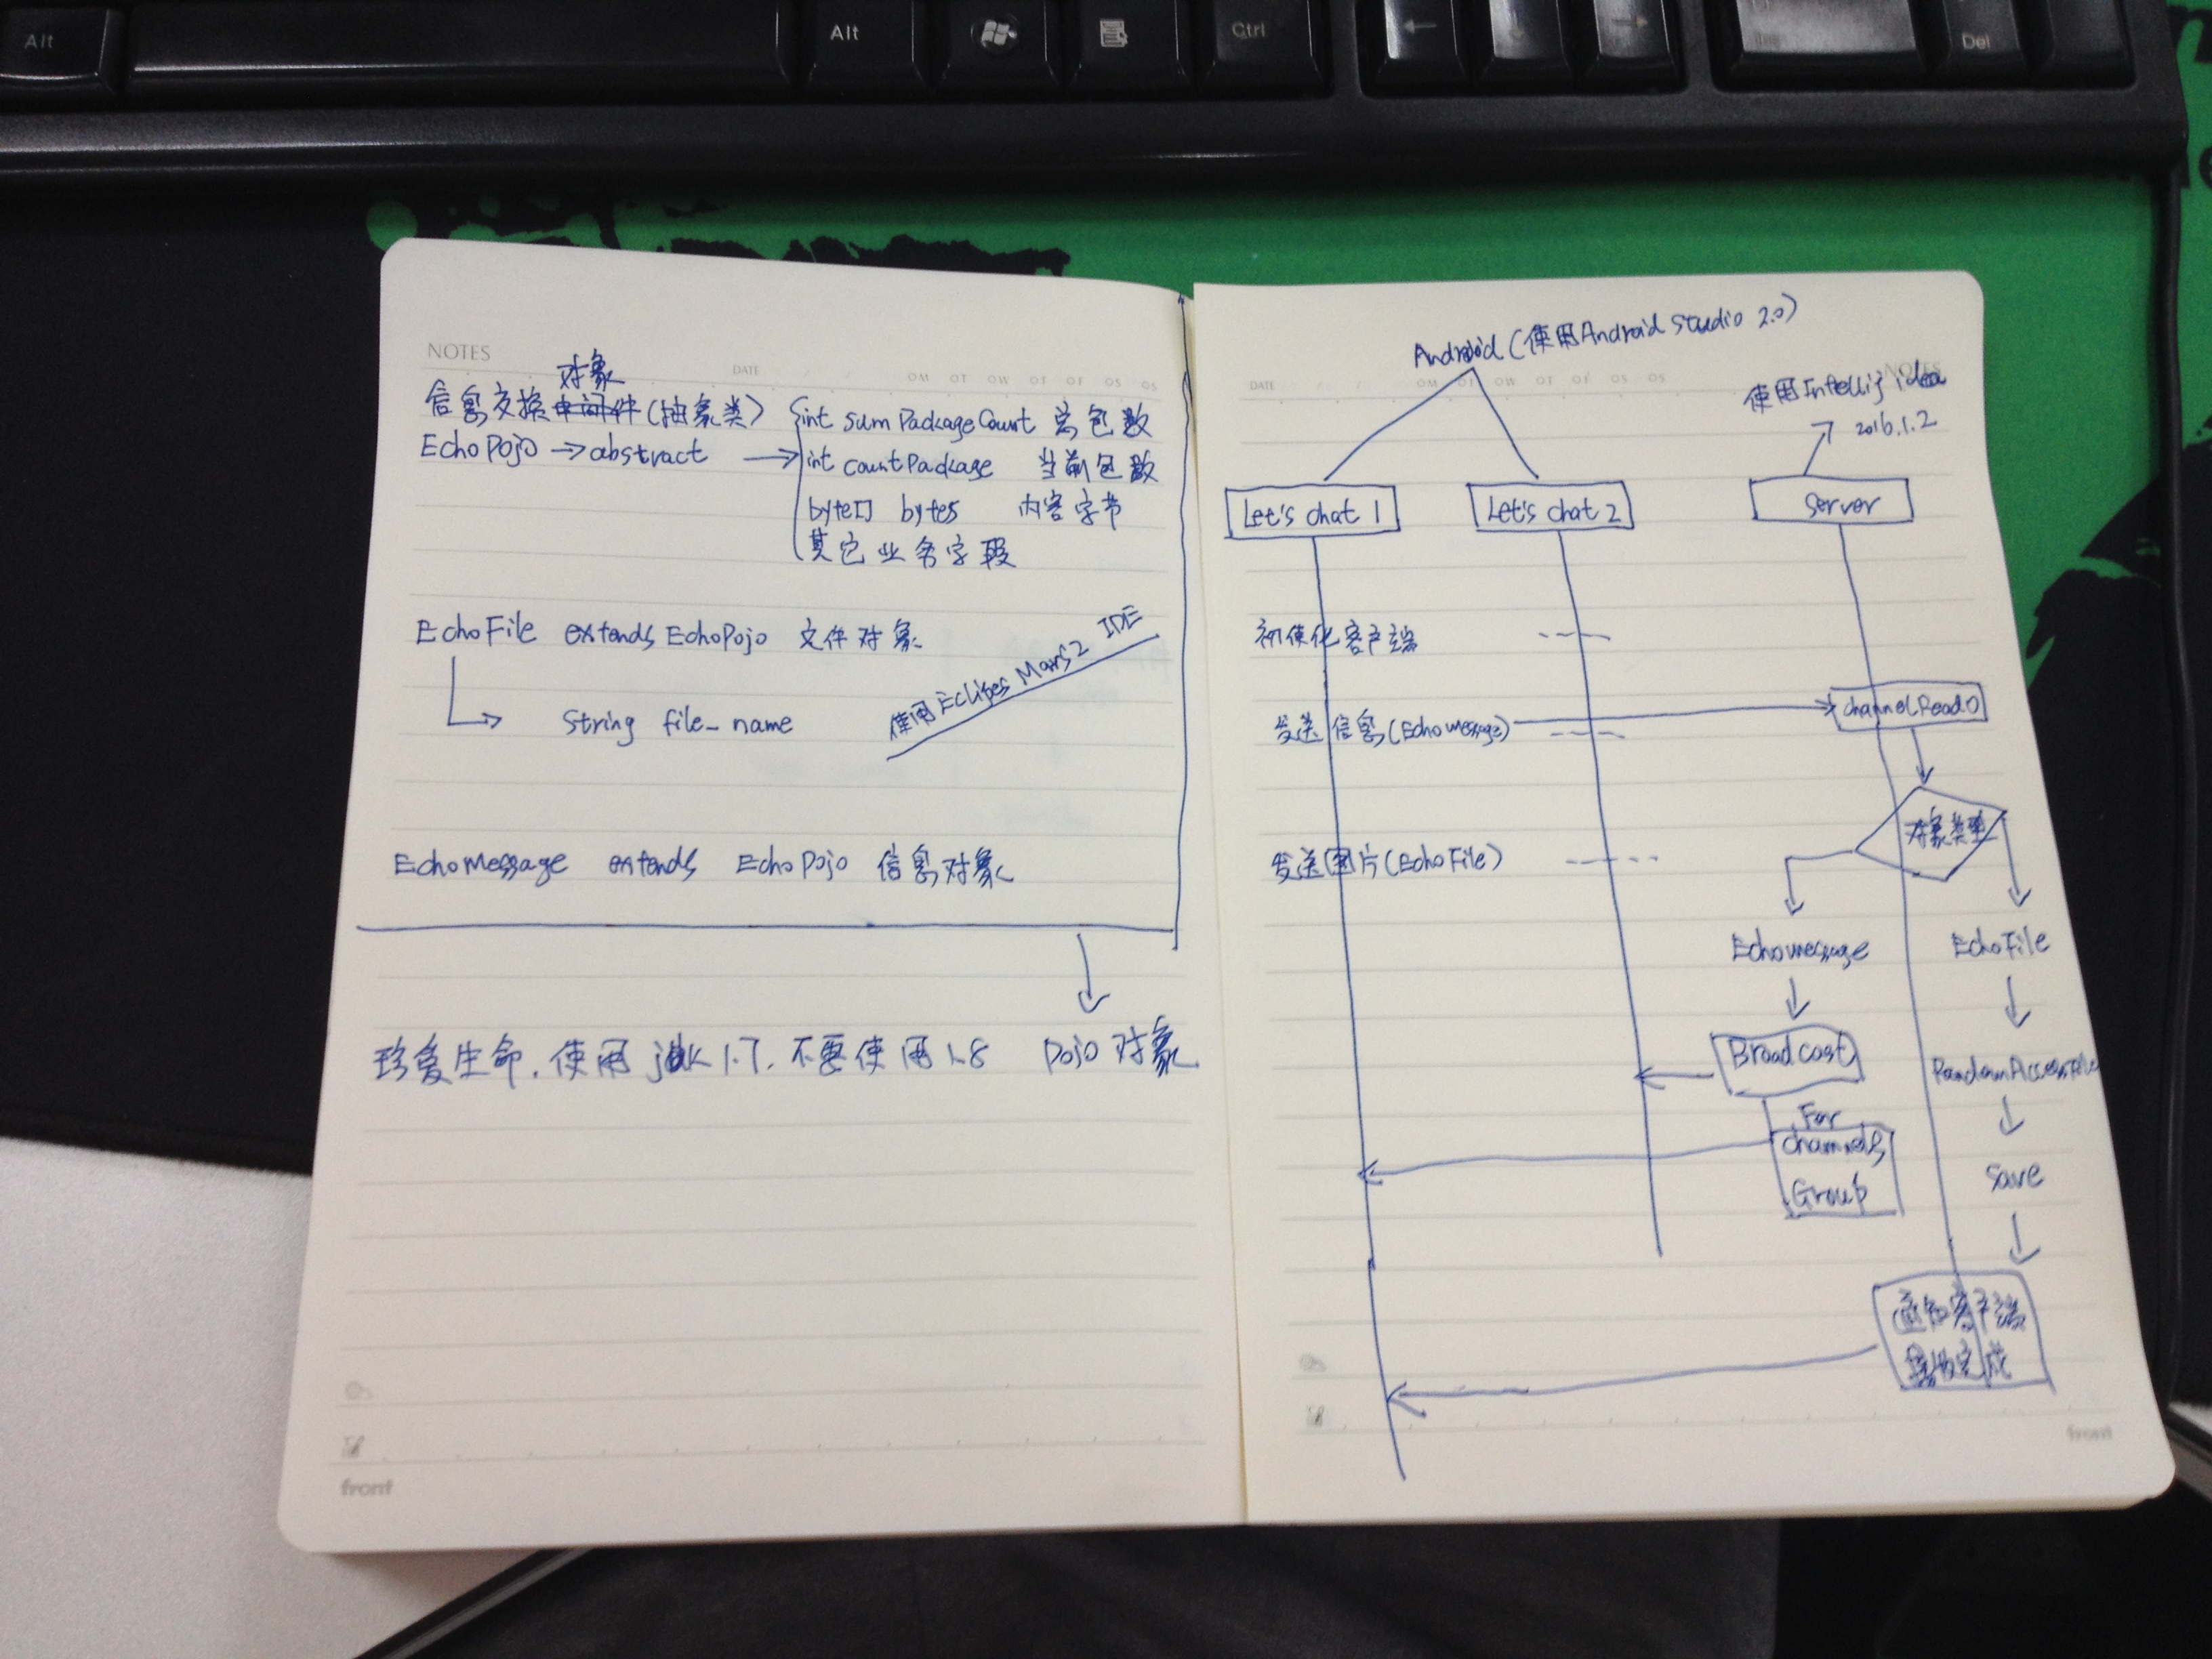 Alt
Alt
Ctrl
Del
NOTES
DATE
对象
信息交换中间件(抽象类)
EchoPojo → abstract →
int sumPackageCount 总包数
int countPackage 当前包数
byte[] bytes 内容字节
其它业务字段
EchoFile extends EchoPojo 文件对象
String file_name
使用Eclipes Mars2 IDE
EchoMessage extends EchoPojo 信息对象
珍爱生命.使用jdk1.7.不要使用1.8
Pojo对象
front
Android(使用Android Studio 2.0)
DATE
NOTES
使用Intellij idea
2016.1.2
Let's chat 1
Let's chat 2
Server
初使化客户端
发送信息(Echomessage)
channelRead0
对象类型
发送图片(EchoFile)
Echomessage
EchoFile
Broadcast
RandomAccessFile
For
channels
Group
Save
通知客户端
接收完成
front